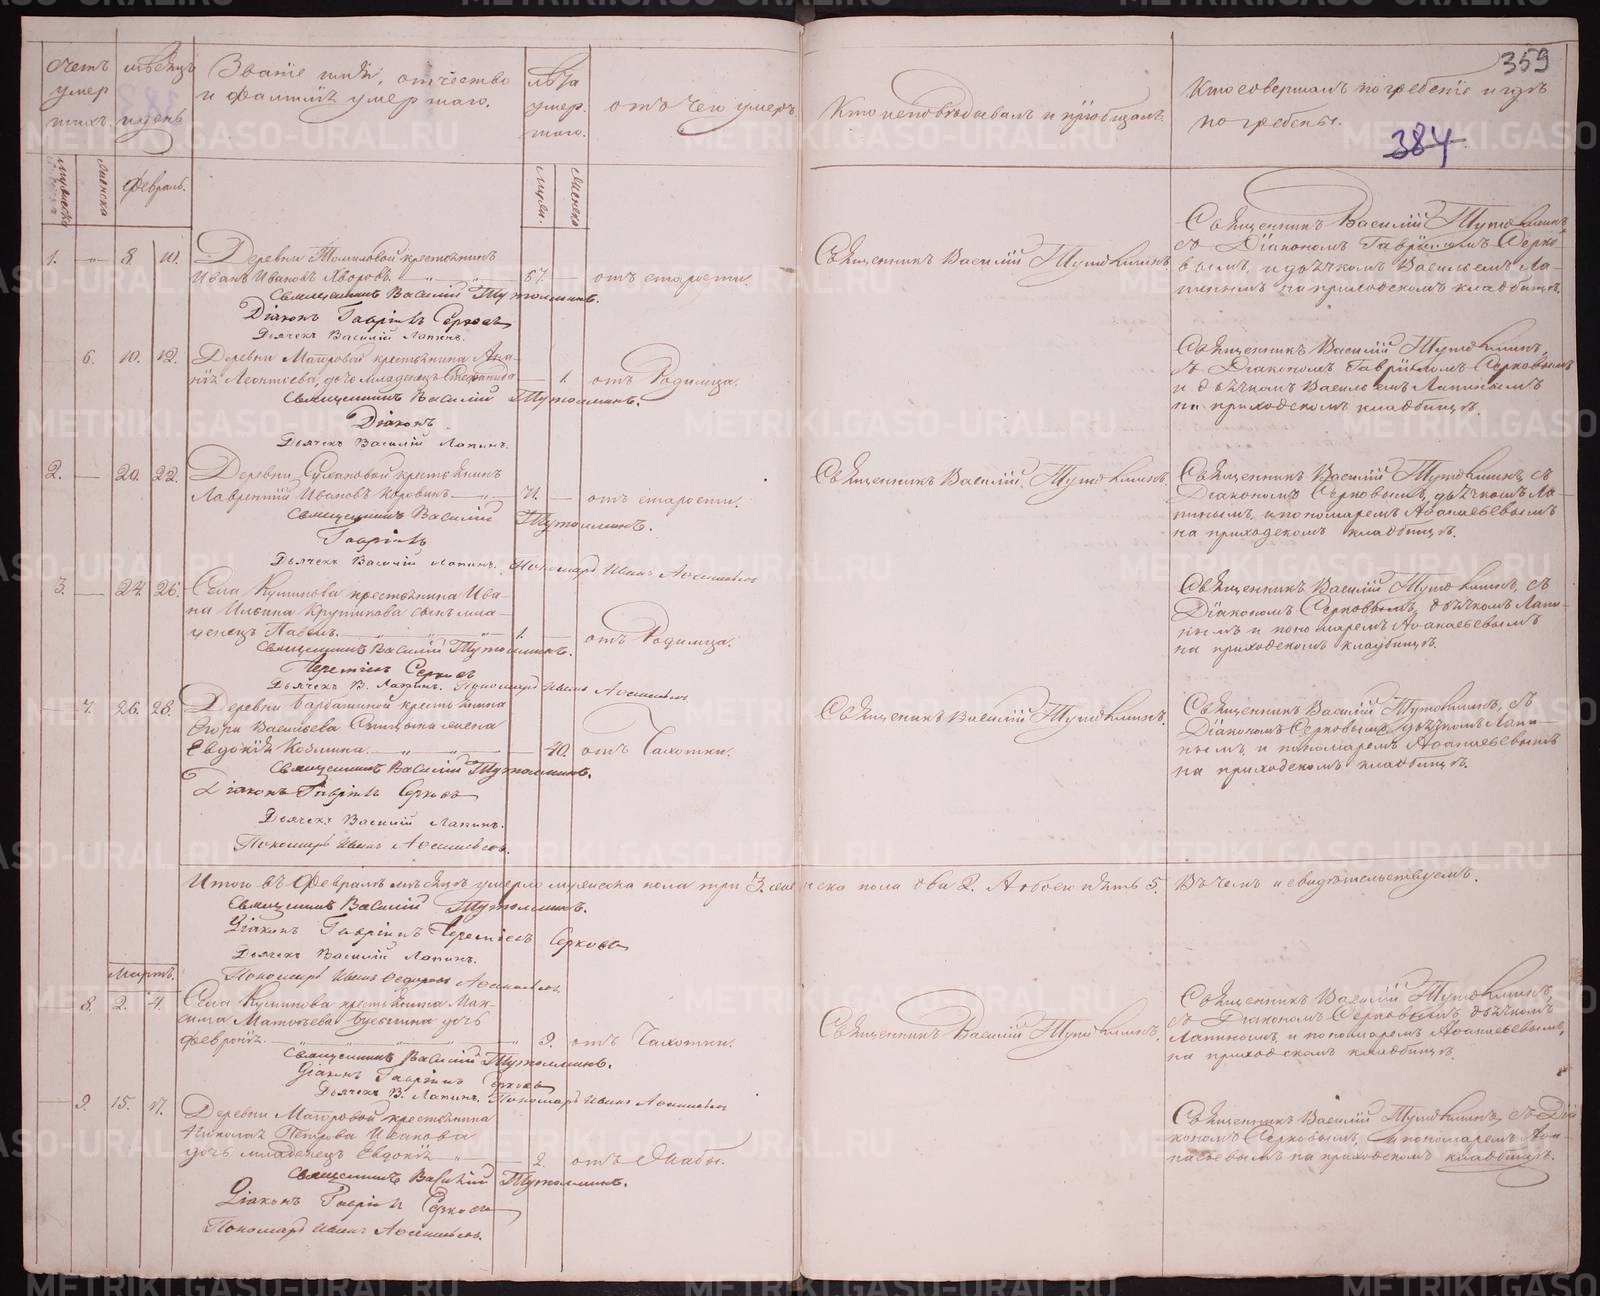 359
384
Счетъ умер шихъ.
мѣсяцъ и день
Званіе имя, отчество
и фамилія умершаго.
лѣта умер. шаго.
отъ чего умеръ
Кто исповѣдывалъ и пріобщалъ.
Кто совершалъ погребеніе и гдѣ
погребены.
мужеска
женска
Февраль.
мужес.
женска
1. — 8 10.
Деревни крестьянинъ
Иванъ Ивановъ Хворовъ. 67. — отъ старости.
Священникъ Василій Тутолминъ.
Діаконъ Гавріилъ Серковъ
Дьячекъ Василій Лапинъ.
Священникъ Василій Тутолминъ.
Священникъ Василій Тутолминъ
съ Діакономъ Гавріиломъ Серко-
вымъ, и дьячкомъ Васильемъ Ла-
пинымъ на приходскомъ кладбищѣ.
6. 10. 12.
Деревни крестьянина Ана-
нія Леонтьева, дочь младенецъ Степанида — 1. отъ Родимца.
Священникъ Василій Тутолминъ.
Діаконъ
Дьячекъ Василій Лапинъ.
Священникъ Василій Тутолминъ,
съ Діакономъ Гавріиломъ Серковымъ
и дьячкомъ Васильемъ Лапинымъ
на приходскомъ кладбищѣ.
2. — 20. 22.
Деревни Сухановой крестьянинъ
Лаврентій Ивановъ Коровинъ — 71. — отъ старости.
Священникъ Василій Тутолминъ.
Гавріилъ
Дьячекъ Василій Лапинъ. Пономарь Иванъ Аѳанасьевъ
Священникъ Василій Тутолминъ.
Священникъ Василій Тутолминъ, съ
Діакономъ Серковымъ, дьячкомъ Ла-
пинымъ, и пономаремъ Аѳанасьевымъ
на приходскомъ кладбищѣ.
3. — 24. 26.
Села крестьянина Ива-
на Ильина Крутикова сынъ мла-
денецъ Павелъ. 1. — отъ Родимца.
Священникъ Василій Тутолминъ.
Серковъ
Дьячекъ В. Лапинъ. Пономарь Иванъ Аѳанасьевъ
Священникъ Василій Тутолминъ, съ
Діакономъ Серковымъ, дьячкомъ Лапи-
нымъ и пономаремъ Аѳанасьевымъ
на приходскомъ кладбищѣ.
7. 26. 28.
Деревни крестьянина
Егора Васильева жена
Евдокія Козмина. — 40. отъ Чахотки.
Священникъ Василій Тутолминъ.
Діаконъ Гавріилъ Серковъ
Дьячекъ Василій Лапинъ.
Пономарь Иванъ Аѳанасьевъ.
Священникъ Василій Тутолминъ.
Священникъ Василій Тутолминъ, съ
Діакономъ Серковымъ, дьячкомъ Лапи-
нымъ, и пономаремъ Аѳанасьевымъ
на приходскомъ кладбищѣ.
Итого въ Февралѣ мѣсяцѣ умерло мужеска пола три 3. женска пола два 2. А обоего пять 5. Въ чемъ и свидѣтельствуемъ.
Священникъ Василій Тутолминъ.
Діаконъ Гавріилъ Серковъ
Дьячекъ Василій Лапинъ.
Пономарь Иванъ Аѳанасьевъ.
Мартъ.
8. 2. 4.
Села крестьянина Мак-
сима Матвѣева дочь
Февронія. 9. отъ Чахотки.
Священникъ Василій Тутолминъ.
Діаконъ Гавріилъ Серковъ
Дьячекъ В. Лапинъ. Пономарь Иванъ Аѳанасьевъ
Священникъ Василій Тутолминъ.
Священникъ Василій Тутолминъ,
съ Діакономъ Серковымъ дьячкомъ
Лапинымъ, и пономаремъ Аѳанасьевымъ,
на приходскомъ кладбищѣ.
9. 15. 17.
Деревни крестьянина
Николая Петрова Иванова
дочь младенецъ Евдокія — 2. отъ Жабы.
Священникъ Василій Тутолминъ.
Діаконъ Гавріилъ Серковъ
Пономарь Иванъ Аѳанасьевъ.
Священникъ Василій Тутолминъ, съ Діа-
кономъ Серковымъ, и пономаремъ Аѳа-
насьевымъ на приходскомъ кладбищѣ.
METRIKI.GASO-URAL.RU